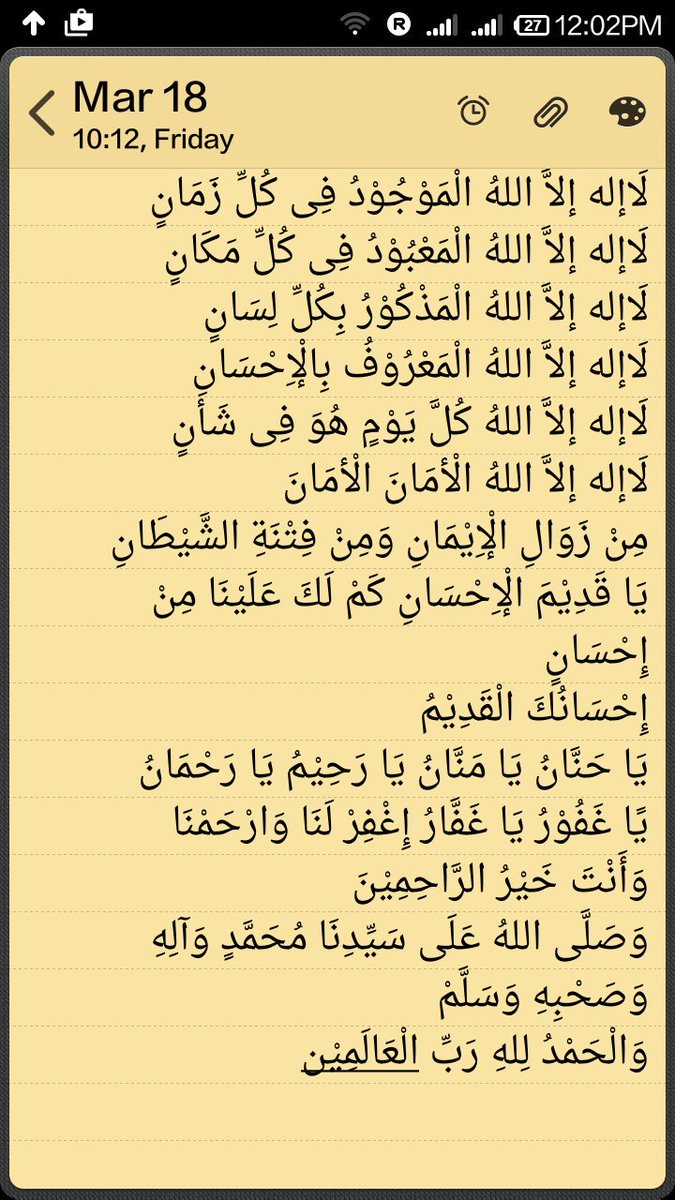 27 12:02PM
Mar 18
10:12, Friday
لَاإله إلاَّ اللهُ الْمَوْجُوْدُ فِى كُلِّ زَمَانٍ
لَاإله إلاَّ اللهُ الْمَعْبُوْدُ فِى كُلِّ مَكَانٍ
لَاإله إلاَّ اللهُ الْمَذْكُوْرُ بِكُلِّ لِسَانٍ
لَاإله إلاَّ اللهُ الْمَعْرُوْفُ بِالْإِحْسَانِ
لَاإله إلاَّ اللهُ كُلَّ يَوْمٍ هُوَ فِى شَأَنٍ
لَاإله إلاَّ اللهُ الْأمَانَ الْأمَانَ
مِنْ زَوَالِ الْإِيْمَانِ وَمِنْ فِتْنَةِ الشَّيْطَانِ
يَا قَدِيْمَ الْإِحْسَانِ كَمْ لَكَ عَلَيْنَا مِنْ
إِحْسَانٍ
إِحْسَانُكَ الْقَدِيْمُ
يَا حَنَّانُ يَا مَنَّانُ يَا رَحِيْمُ يَا رَحْمَانُ
يًا غَفُوْرُ يَا غَفَّارُ إِغْفِرْ لَنَا وَارْحَمْنَا
وَأَنْتَ خَيْرُ الرَّاحِمِيْنَ
وَصَلَّى اللهُ عَلَى سَيِّدِنَا مُحَمَّدٍ وَآلِهِ
وَصَحْبِهِ وَسَلَّمْ
وَالْحَمْدُ لِلهِ رَبِّ الْعَالَمِيْن